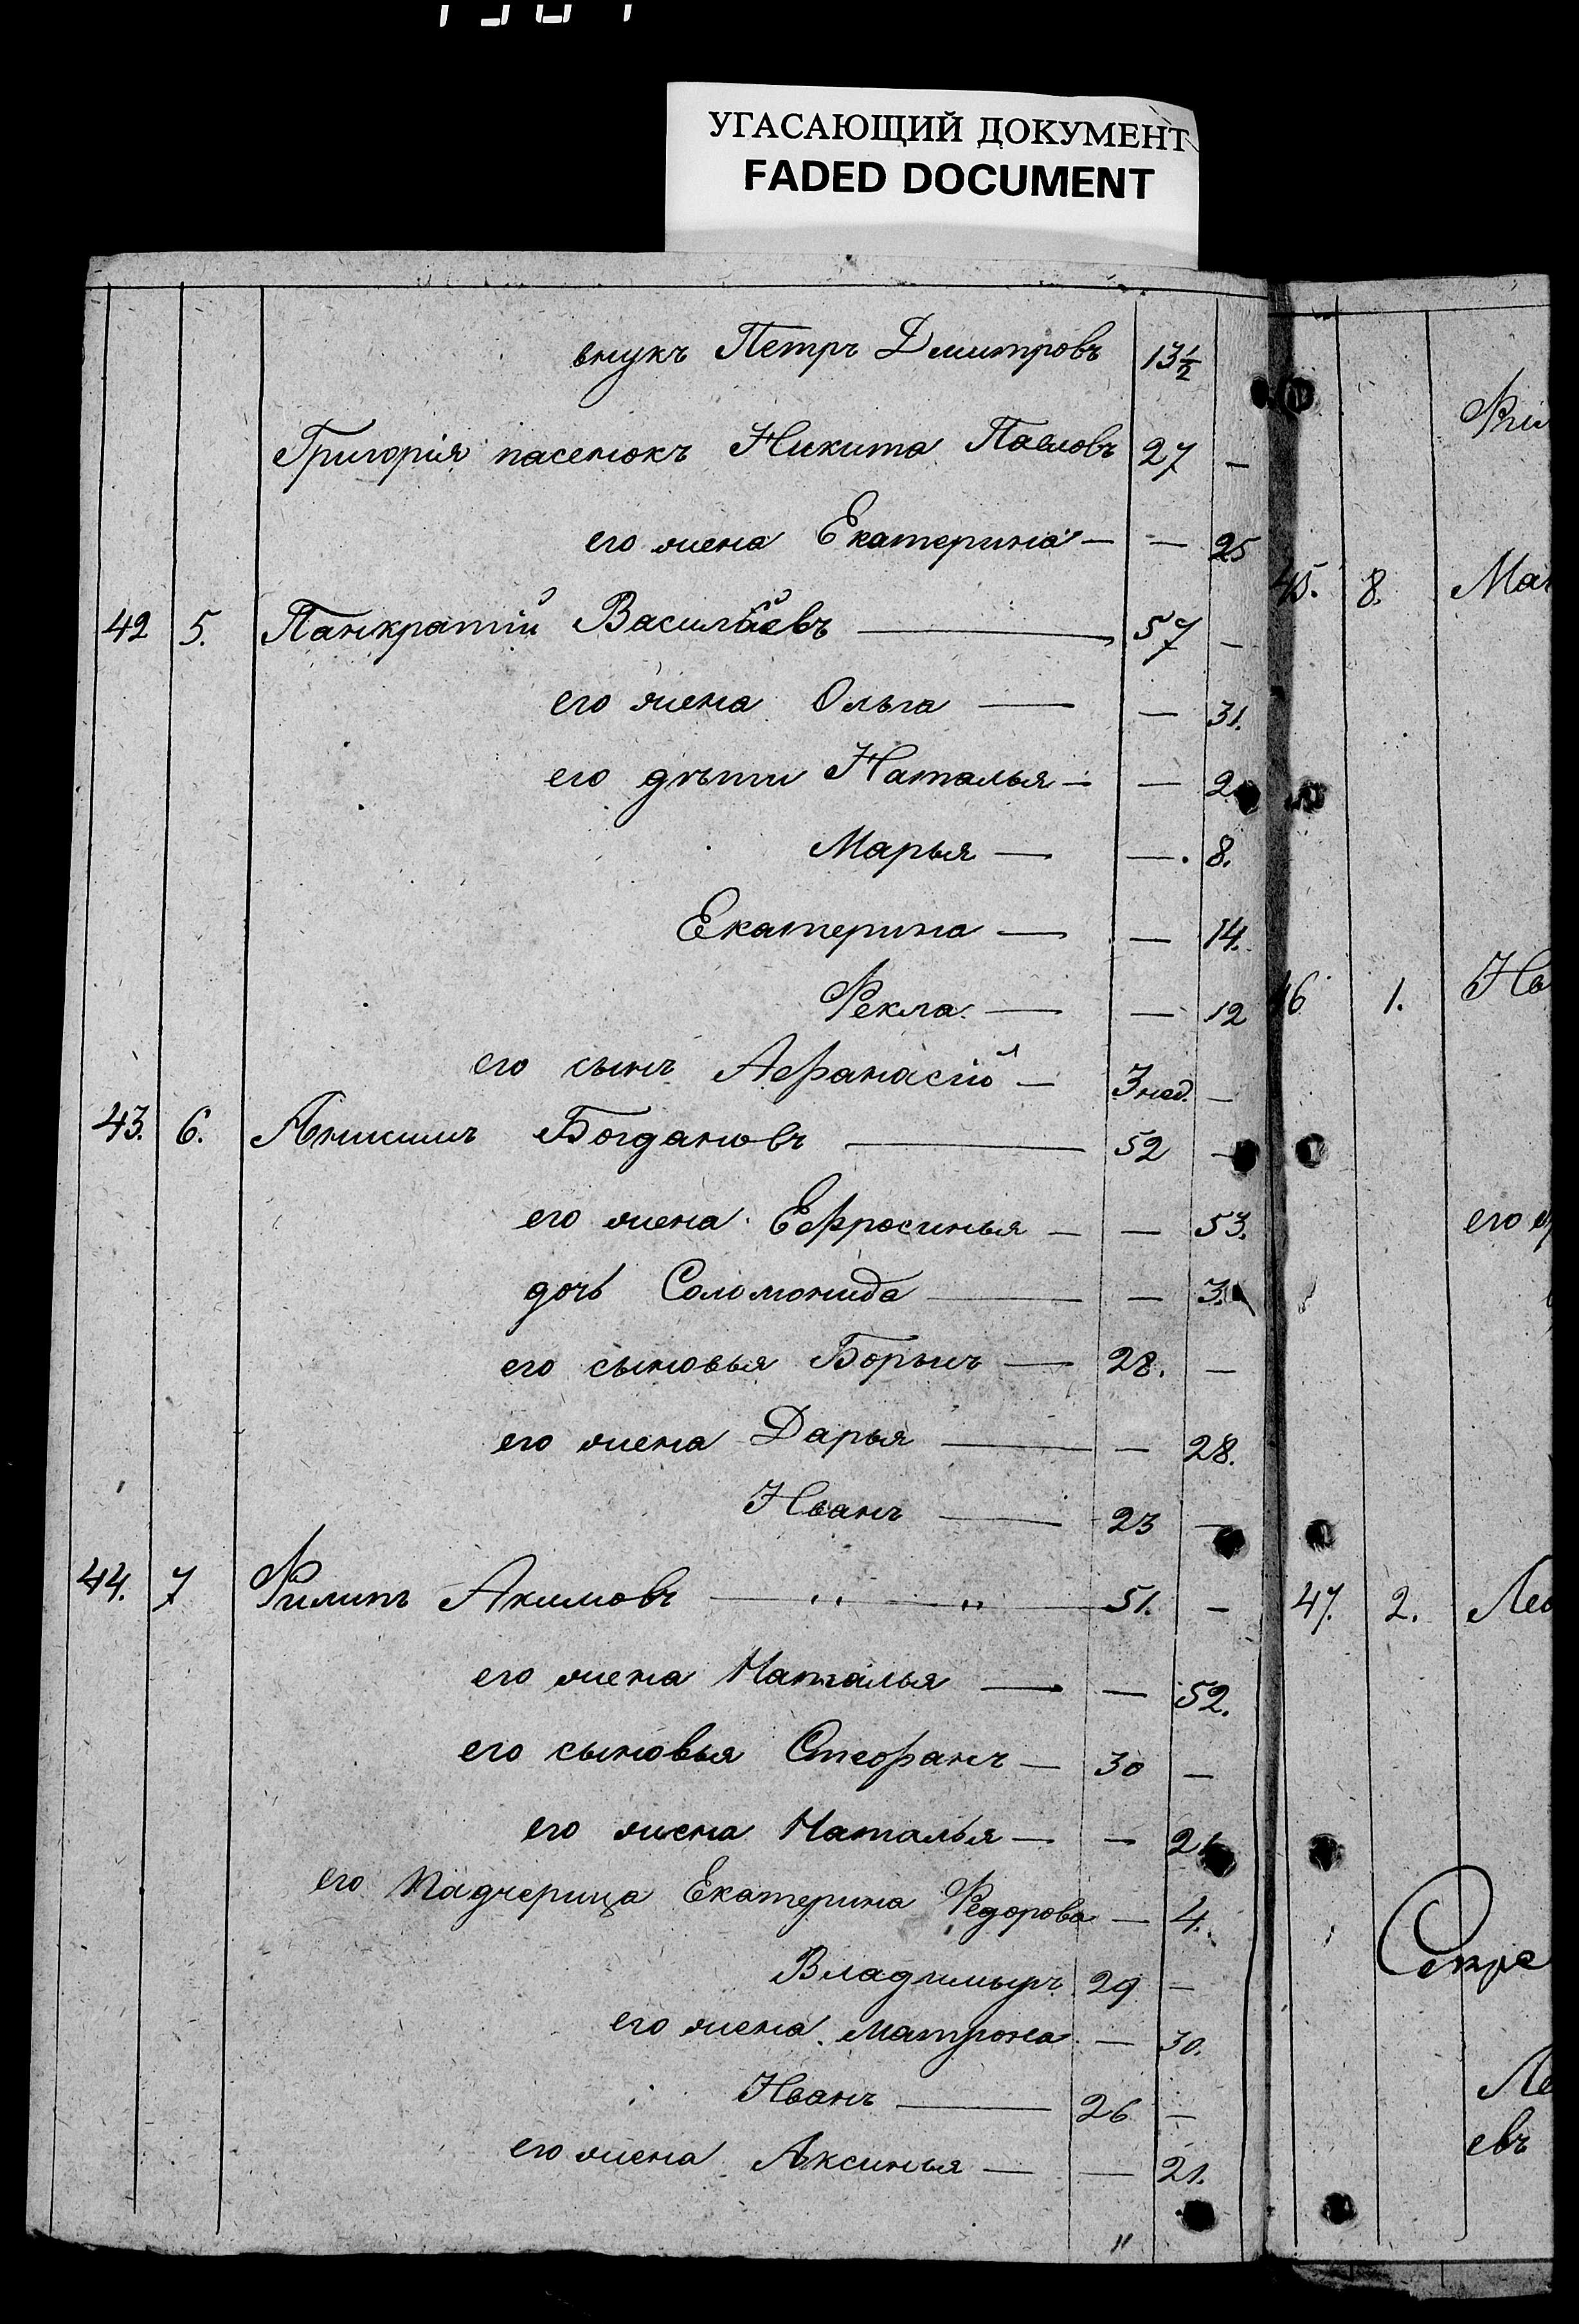 УГАСАЮЩИЙ ДОКУМЕНТ
FADED DOCUMENT
внукъ Петръ Дмитровъ 13½
Григорія пасенокъ Никита Павловъ 27 —
его жена Екатерина — — 25
42 5. Панкратій Васильевъ — 57 —
его жена Ольга — — 31.
его дѣти Наталья — — 2
Марья — — 8.
Екатерина — — 14.
Фекла — — 12
его сынъ Афанасій — 3 нед. —
43. 6. Анисимъ Богдановъ — 52 —
его жена Ефросинья — — 53.
дочь Соломонида — — 3.
его сыновья Борисъ — 28. —
его жена Дарья — — 28.
Иванъ — 23 —
44. 7 Филипъ Акимовъ — " — " — 51. —
его жена Наталья — — 52.
его сыновья Стефанъ — 30 —
его жена Наталья — — 2
его падчерица Екатерина Федорова — 4.
Владимыръ 29 —
его жена Матрона — 30.
Иванъ — 26 —
его жена Аксинья — — 21.
"
45. 8.
46 1.
его
47. 2.
евъ